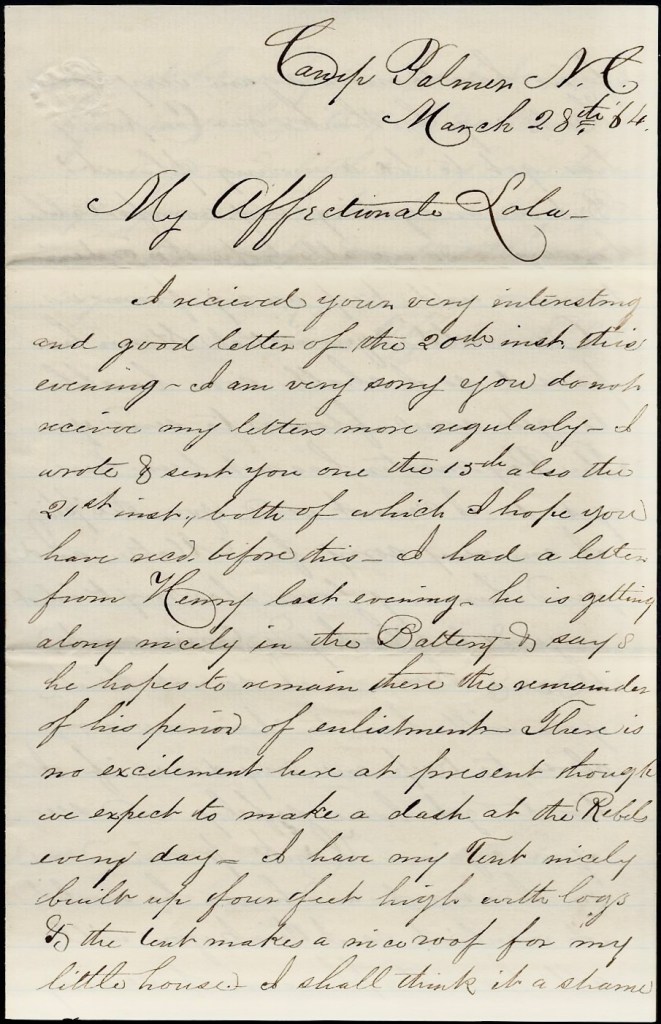 Camp Palmer N. C.
March 28th, 64.
My Affectionate Lola -
I recieved your very interesting
and good letter of the 20th inst. this
evening - I am very sorry you do not
recieve my letters more regularly - I
wrote & sent you one the 15th also the
21st inst., both of which I hope you
have recd. before this - I had a letter
from Henry last evening - he is getting
along nicely in the Battery & says
he hopes to remain there the remainder
of his period of enlistment - There is
no excitement here at present though
we expect to make a dash at the Rebels
every day - I have my Tent nicely
built up four feet high with logs
& the tent makes a nice roof for my
little house - I shall think it a shame